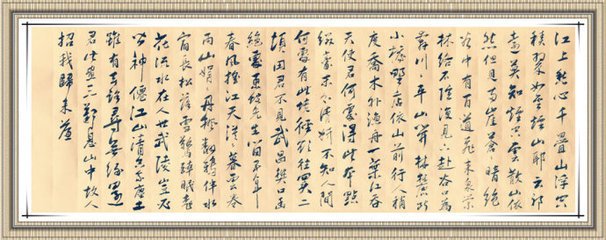 江上愁心千疊山浮空
積翠如雲煙山耶雲耶
遠莫知煙空雲散山依
然但見兩崖蒼蒼暗絕
谷中有百道飛來泉縈
林絡石隱復見下赴谷口為
奔川川平山開林麓斷
小橋野店依山前行人稍
度喬木外漁舟一葉江吞
天使君何處得此本點
綴毫末分清妍不知人間
何處有此境徑欲往買二
頃田君不見武昌樊口幽
絕處東坡先生留五年
春風搖江天漠漠暮雲卷
雨山娟娟丹楓翻鴉伴水
宿長松落雪驚醉眠桃
花流水在人世武陵豈必
皆神僊江山清空我塵土
雖有去路尋無緣還
君此畫三歎息山中故人
招我歸來篇